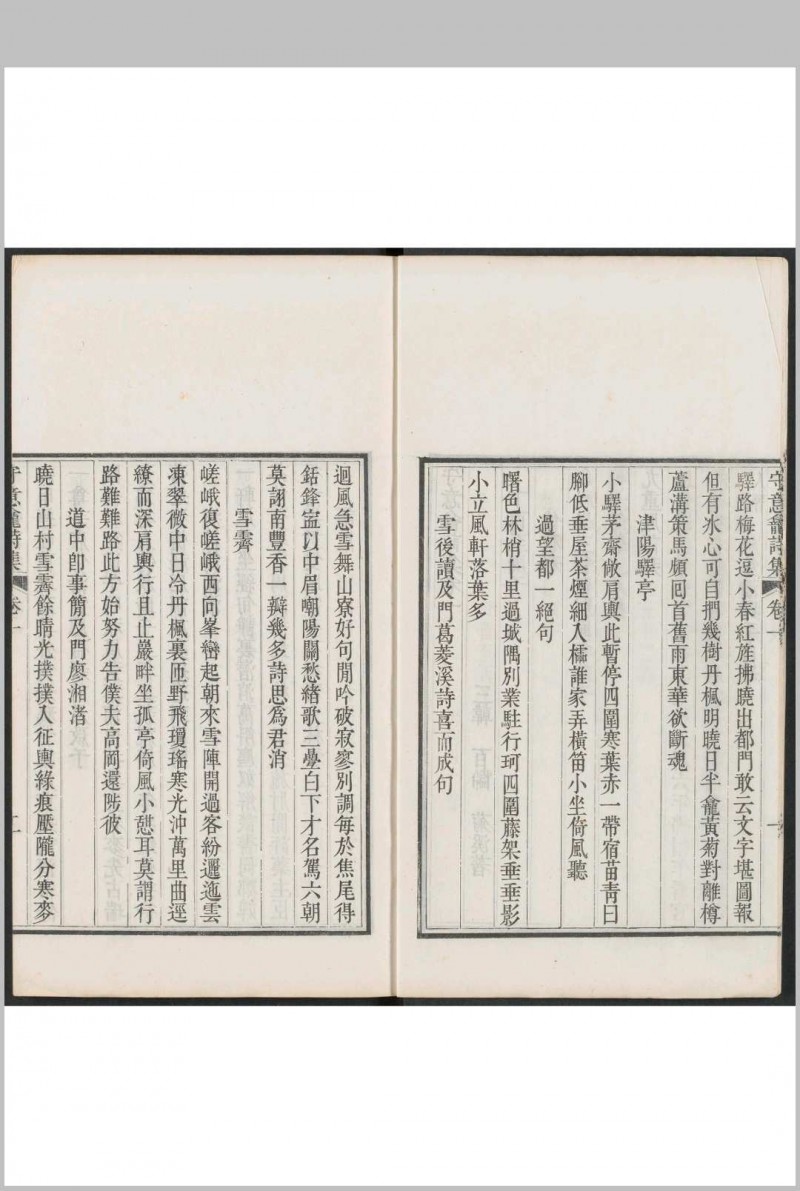 守意龕詩集 卷一 一
驛路梅花逗小春紅旌拂曉出都門敢云文字堪圖報
但有氷心可自捫幾樹丹楓明曉日半龕黃菊對離樽
蘆溝策馬頻囘首舊雨東華欲斷魂
津陽驛亭
小驛茅齋敞肩輿此暫停四圍寒葉赤一帶宿苗靑日
腳低垂屋茶煙細入櫺誰家弄橫笛小坐倚風聽
過望都一絕句
曙色林梢十里過城隅別業駐行珂四圍藤架垂垂影
小立風軒落葉多
雪後讀及門葛菱溪詩喜而成句
迴風急雪舞山寮好句閒吟破寂寥別調每於焦尾得
銛鋒宐以中眉嘲陽關愁緖歌三疊白下才名駕六朝
莫詡南豐香一瓣幾多詩思爲君消
雪霽
嵯峨復嵯峨西向峯巒起朝來雪陣開過客紛邐迤雲
凍翠微中日冷丹楓裏匝野飛瓊瑤寒光沖萬里曲逕
繚而深肩輿行且止巖畔坐孤亭倚風小憇耳莫謂行
路難難路此方始努力告僕夫高岡還陟彼
道中卽事簡及門廖湘渚
曉日山村雪霽餘晴光撲撲入征輿綠痕壓隴分寒麥
守意龕詩集 卷一 二